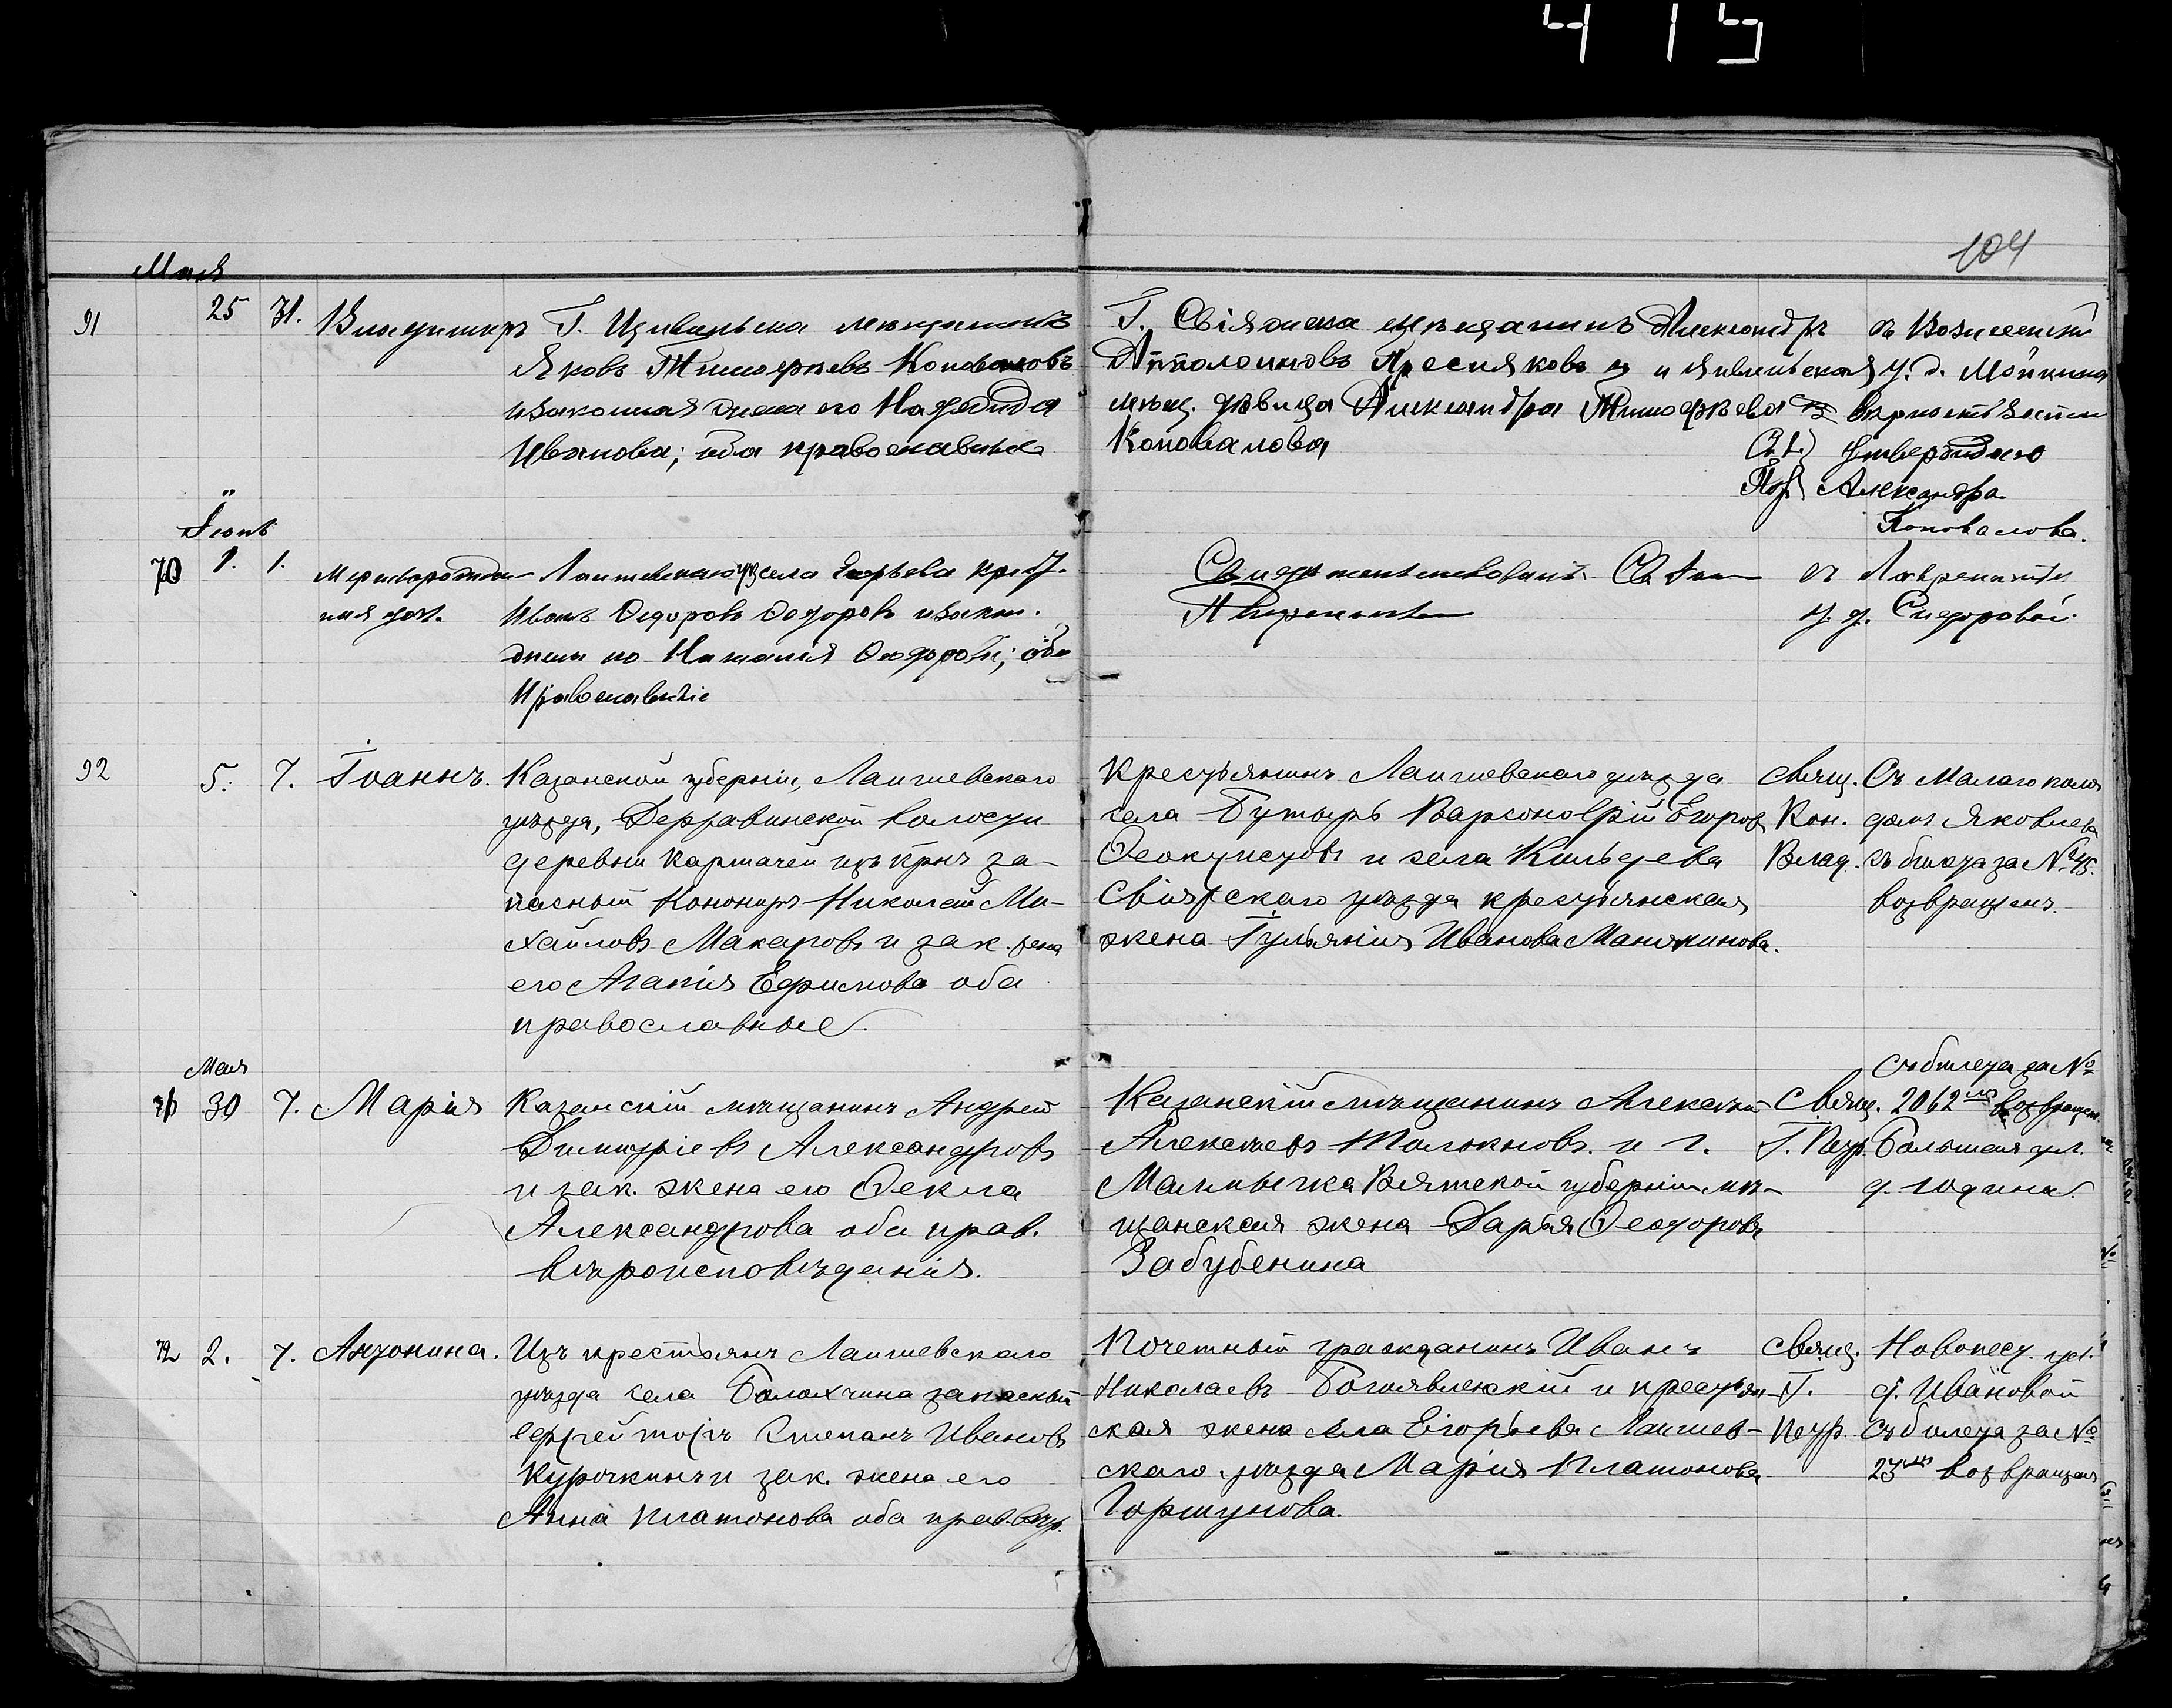 415
104
Мая
91 25 31. Владимiръ Г. Цивильска мѣщанинъ
Яковъ Тимофѣевъ Коноваловъ
и законная жена его Надежда
Иванова; оба православные
Г. Свiяжска мѣщанинъ Александръ
Апполоновъ Пресняковъ и цивильская
мѣщ. дѣвица Александра Тимофѣева
Коновалова
въ Вознесенской
у. д.
Александра
Коновалова.
Iюнь
70 1. 1. Мертворожден-
ная дочь.
Лаишевскаго у села Егорьева крест.
Иванъ Ѳедоровъ Ѳедоровъ и закон.
жена его Наталiя Ѳеодорова; оба
Православнiе
въ
у. д. Сидоровой.
92 5. 7. Iоаннъ.
Казанской губернiи, Лаишевскаго
уѣзда, Державинской волости
деревни Кармачей изъ крнъ за-
пасный Канониръ Николай Ми-
хайловъ Макаровъ и зак. жена
его Агапiя Ефимова оба
православные.
Крестьянинъ Лаишевскаго уѣзда
села Бутырь Варсонофiй Егоровъ
Ѳеоктистовъ и села Кильдеева
Свiяжскаго уѣзда крестьянская
жена Iульянiя Иванова Манякинова.
Свящ.
Кон.
Влад.
Съ Малаго поля
домъ Яковлева
съ билета за № 45.
возвращенъ.
Мая
71 30 7. Марiя
Казанскiй мѣщанинъ Андрей
Димитрiевъ Александровъ
и зак. жена его Ѳекла
Александрова оба прав.
вѣроисповѣданiя.
Казанскiй мѣщанинъ Алексѣй
Алексѣевъ Толокновъ и г.
Малмыжа Вятской губернiи мѣ-
щанская жена Дарья Ѳеодорова
Забубенина
Свящ.
Г. Петр.
Съ билета за №
2062 возвращен.
Большая ул.
д. Юдина.
72 2. 7. Антонина.
Изъ крестьянъ Лаишевскаго
уѣзда села Балахчина запасный
ефрейторъ Степанъ Ивановъ
Курочкинъ и зак. жена его
Анна Платонова оба прав. вѣр.
Почетный гражданинъ Иванъ
Николаевъ Богоявленскiй и крестьян-
ская жена села Егорьева Лаишев-
скаго уѣзда Марiя Платонова
Горшунова.
Свящ.
Г.
Петр.
Новопест. ул.
д. Ивановой
Съ билета за №
23 возвращен